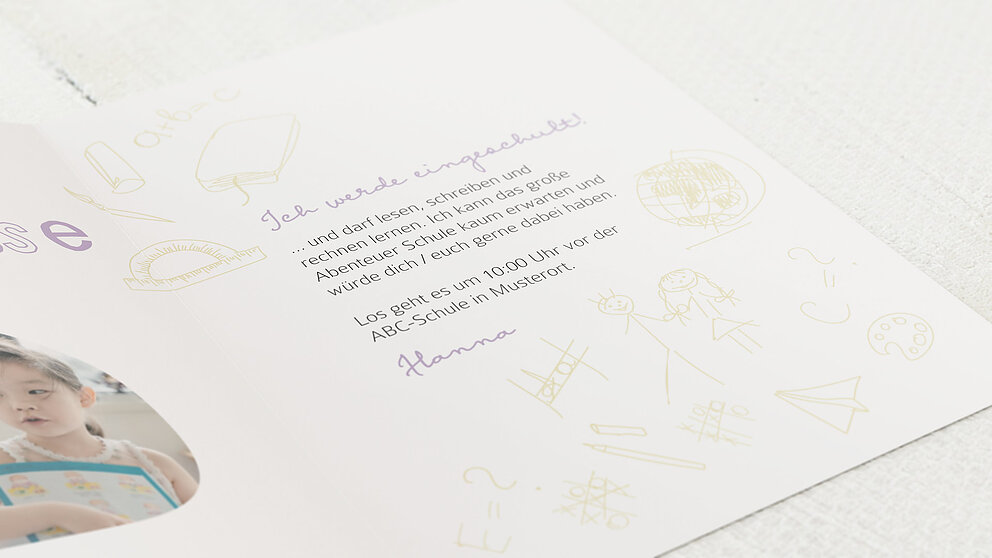 se
a+b=c
Ich werde eingeschult!
... und darf lesen, schreiben und
rechnen lernen. Ich kann das große
Abenteuer Schule kaum erwarten und
würde dich / euch gerne dabei haben.
Los geht es um 10:00 Uhr vor der
ABC-Schule in Musterort.
Hanna
C=?
E=?